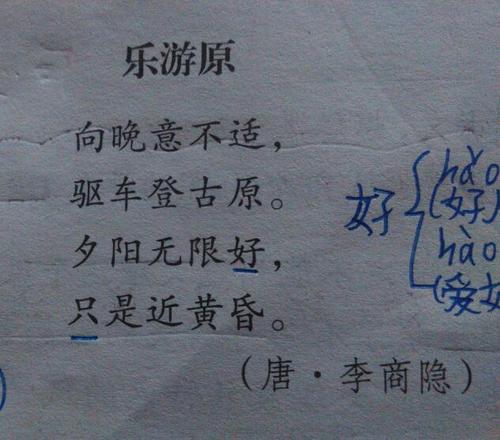 乐游原
向晚意不适，
驱车登古原。
夕阳无限好，
只是近黄昏。
（唐·李商隐）
好
hǎo
(好
hào
(爱